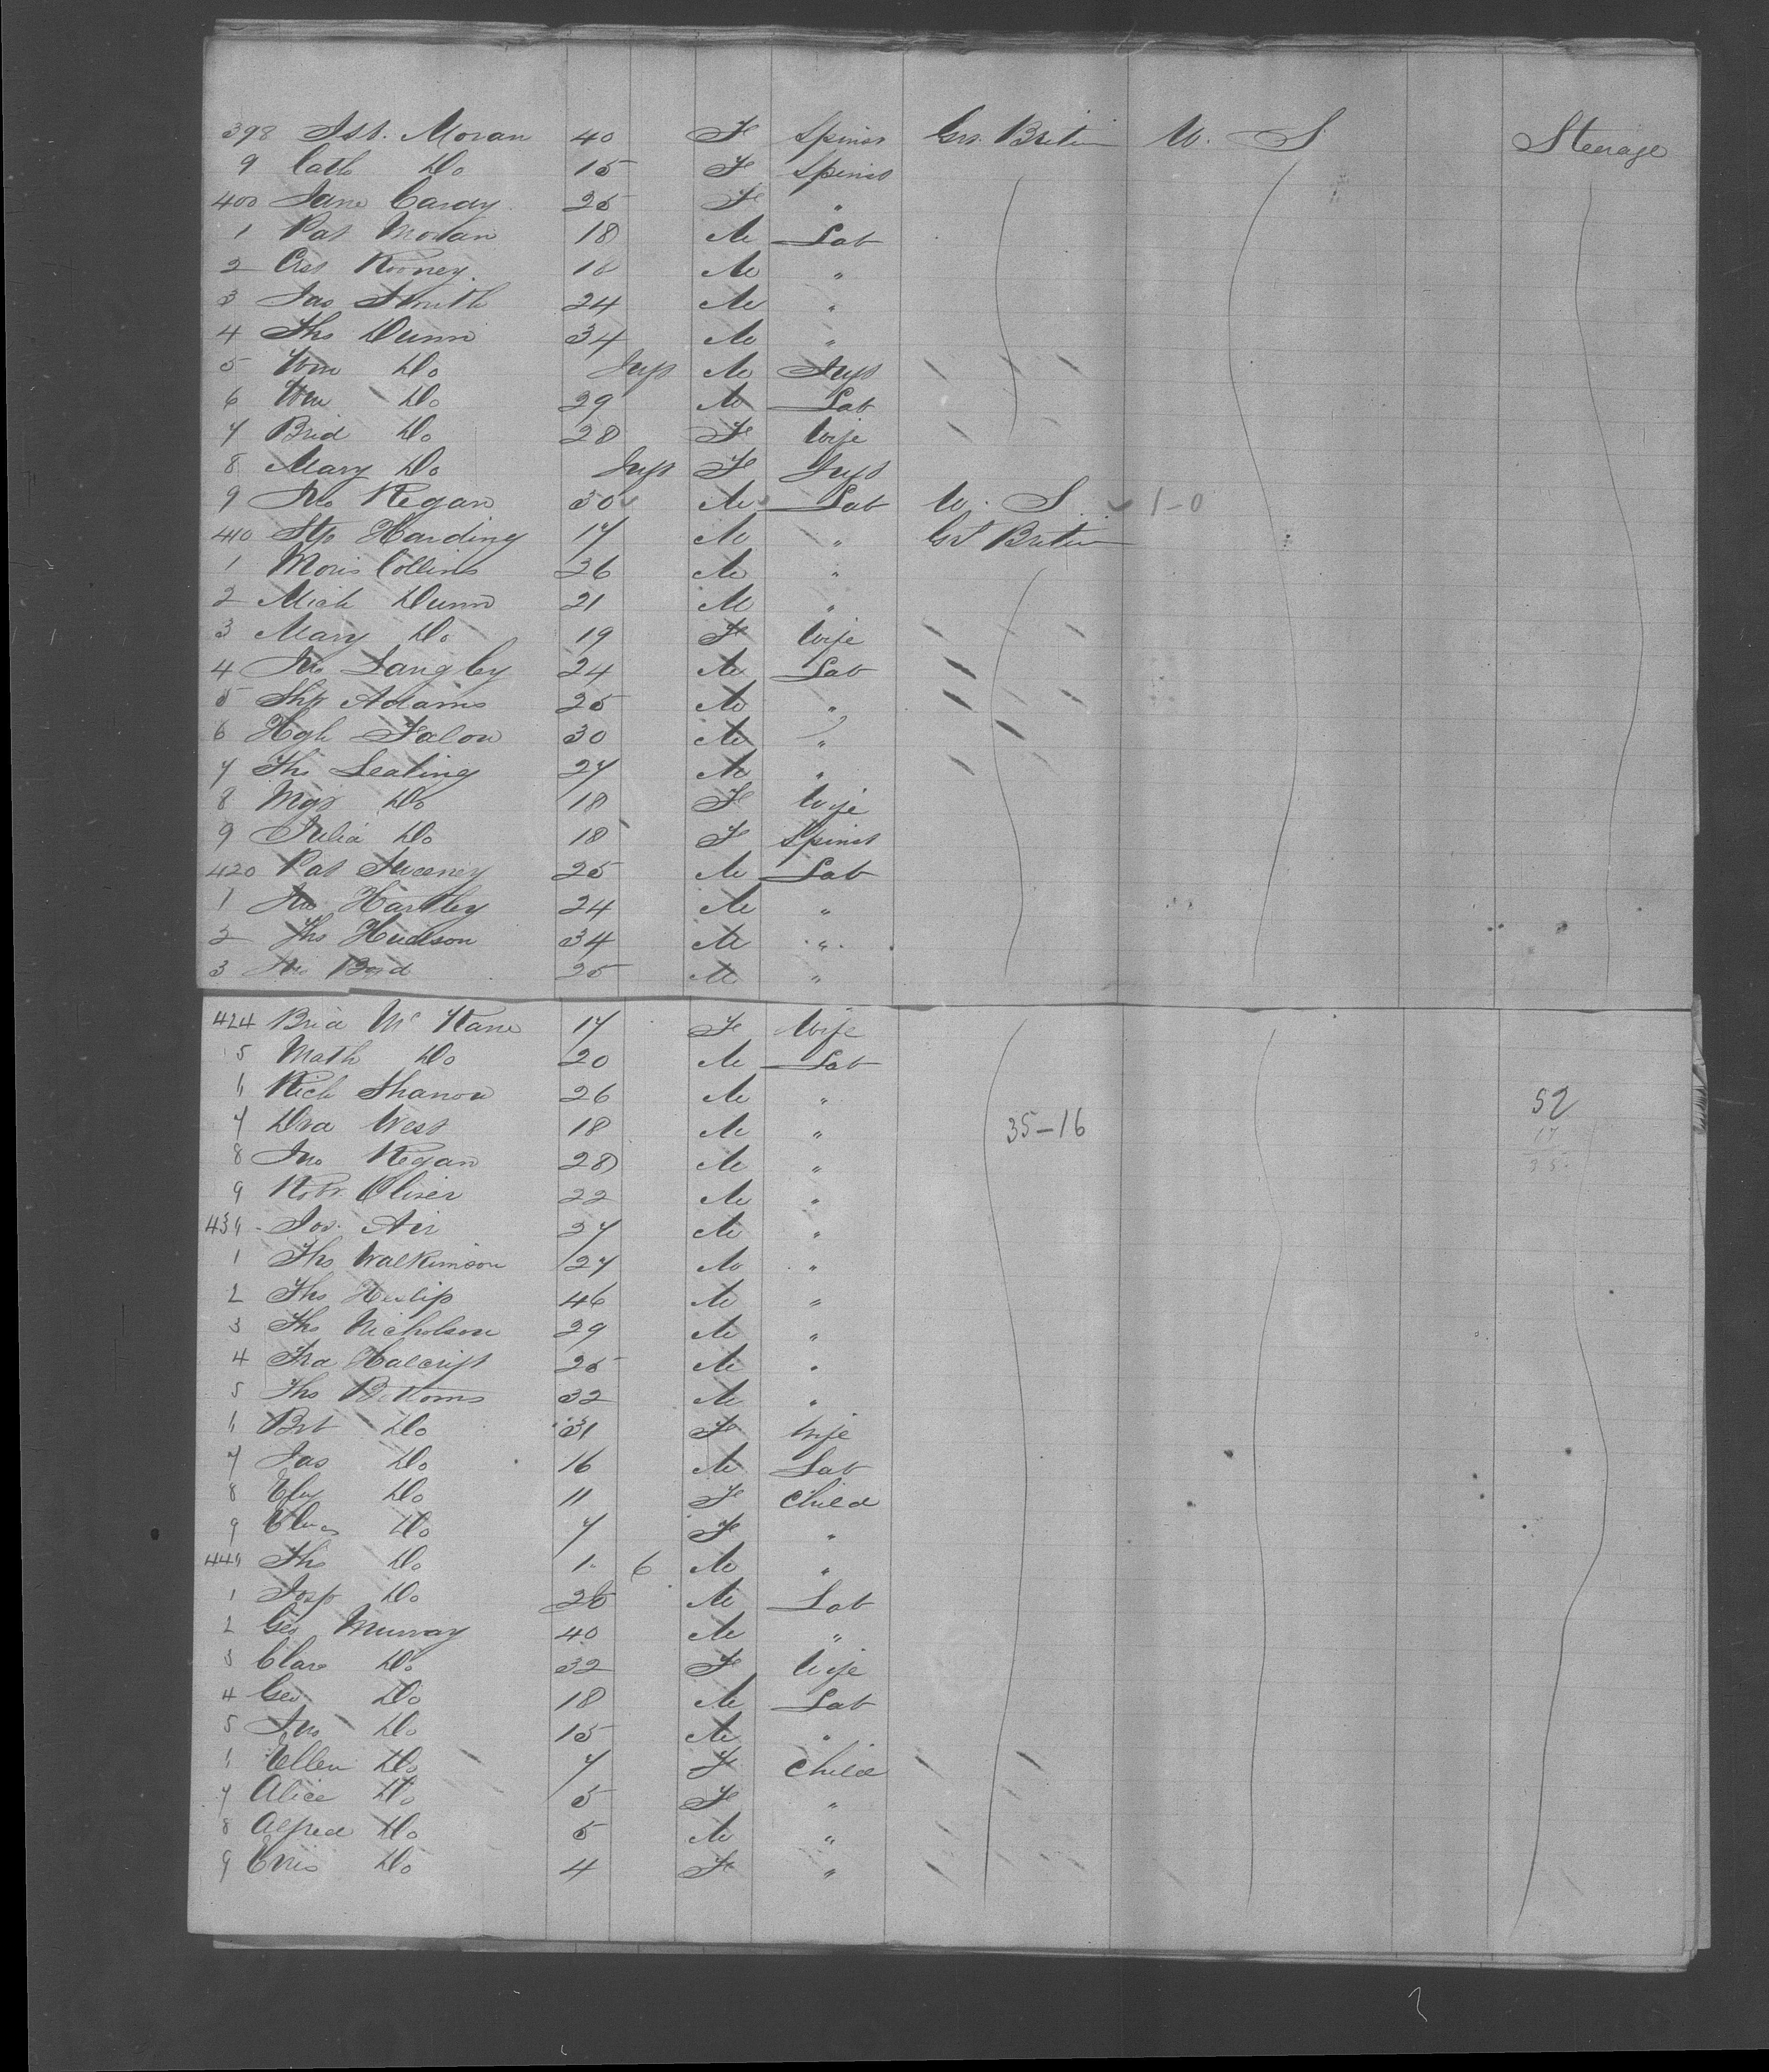 398 Isb. Moran 40 F Spinst Grt. Britin U. S. Steerage
9 Cath Do 15 F Spinst
400 Jane Cardy 25 F "
1 Pat Moran 18 M Lab
2 Rooney 18 M "
3 Jas Smith 24 M "
4 Ths Dunn 34 M "
5 Wm Do Inft M Inft
6 Wm Do 29 M Lab
7 Brid Do 28 F Wife
8 Mary Do Inft F Inft
9 Jno Regan 30 M Lab U. S. 1-0
410 Stp Harding 17 M " Gt Britin
1 Moris Collins 26 M "
2 Mich Dunn 21 M "
3 Mary Do 19 F Wife
4 Jno Langley 24 M Lab
5 Adams 25 M "
6 Hgh Falon 30 M "
7 Ths Lealing 27 M "
8 Mgt Do 18 F Wife
9 Julia Do 18 F Spinst
420 Pat Sweeney 25 M Lab
1 Jno Hartley 24 M "
2 Ths Hudson 34 M "
3 25 M "
424 Brid Mc Kane 17 F Wife
5 Math Do 20 M Lab
6 Rich Shanon 26 M "
7 West 18 M " 35-16 52
17
8 Jno Regan 28 M " 35
9 Robt. Oliver 22 M "
430 Air 27 M "
1 Ths Walkinson 27 M "
2 Ths 46 M "
3 Ths Nicholson 29 M "
4 Fra 25 M "
5 Ths Bottoms 32 M "
6 Do 31 F Wife
7 Jas Do 16 M Lab
8 Do 11 F Child
9 Do 7 F "
440 Ths Do 1 6 M "
1 Josp Do 26 M Lab
2 Geo Murray 40 M "
3 Clara Do 32 F Wife
4 Geo Do 18 M Lab
5 Jno Do 15 M "
6 Ellen Do 7 F Child
7 Alice Do 5 F "
8 Alfred Do 5 M "
9 Do 4 F "